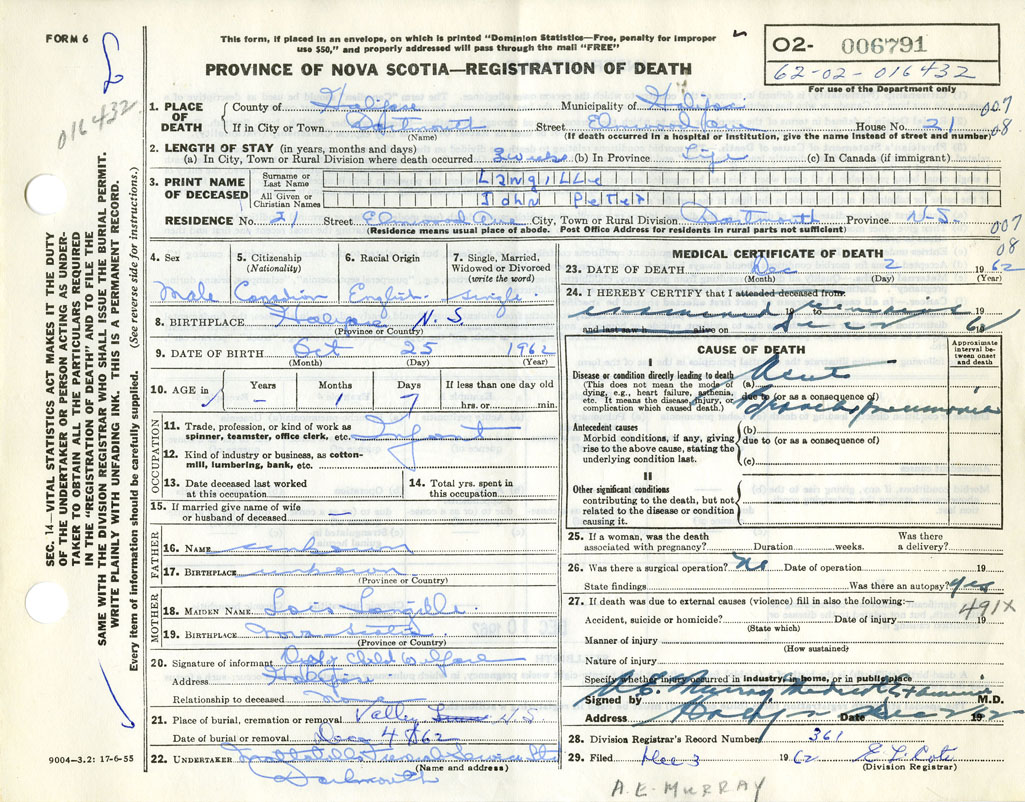 FORM 6
This form, if placed in an envelope, on which is printed "Dominion Statistics—Free, penalty for improper
use $50," and properly addressed will pass through the mail "FREE"
PROVINCE OF NOVA SCOTIA—REGISTRATION OF DEATH
02- 006791
62-02-016432
For use of the Department only
016432
SEC. 14—VITAL STATISTICS ACT MAKES IT THE DUTY
OF THE UNDERTAKER OR PERSON ACTING AS UNDER-
TAKER TO OBTAIN ALL THE PARTICULARS REQUIRED
IN THE "REGISTRATION OF DEATH" AND TO FILE THE
SAME WITH THE DIVISION REGISTRAR WHO SHALL ISSUE THE BURIAL PERMIT.
WRITE PLAINLY WITH UNFADING INK. THIS IS A PERMANENT RECORD.
Every item of information should be carefully supplied. (See reverse side for instructions.)
1. PLACE OF DEATH
County of Halifax Municipality of Halifax 007
If in City or Town Dartmouth Street Elmwood Ave House No. 21 08
(Name) (If death occurred in a hospital or institution, give the name instead of street and number)
2. LENGTH OF STAY (in years, months and days)
(a) In City, Town or Rural Division where death occurred 3 weeks (b) In Province Life (c) In Canada (if immigrant)
3. PRINT NAME OF DECEASED
Surname or Last Name Langille
All Given or Christian Names John Peter
RESIDENCE No. 21 Street Elmwood Ave City, Town or Rural Division Dartmouth Province N.S. 007
(Residence means usual place of abode. Post Office Address for residents in rural parts not sufficient) 08
4. Sex 5. Citizenship (Nationality) 6. Racial Origin 7. Single, Married, Widowed or Divorced (write the word)
Male Canadian English single
8. BIRTHPLACE Halifax N.S.
(Province or Country)
9. DATE OF BIRTH Oct 25 1962
(Month) (Day) (Year)
10. AGE in Years Months Days If less than one day old
— 1 7 hrs. or min.
OCCUPATION
11. Trade, profession, or kind of work as spinner, teamster, office clerk, etc. Infant
12. Kind of industry or business, as cotton-mill, lumbering, bank, etc.
13. Date deceased last worked at this occupation
14. Total yrs. spent in this occupation
15. If married give name of wife or husband of deceased —
FATHER
16. NAME unknown
17. BIRTHPLACE unknown
(Province or Country)
MOTHER
18. MAIDEN NAME Lois Langille
19. BIRTHPLACE Nova Scotia
(Province or Country)
20. Signature of informant Child Welfare
Address Halifax
Relationship to deceased none
21. Place of burial, cremation or removal Valley N.S.
Date of burial or removal Dec 4 /62
22. UNDERTAKER
(Name and address)
Dartmouth
9004—3.2: 17-6-55
MEDICAL CERTIFICATE OF DEATH
23. DATE OF DEATH Dec 2 1962
(Month) (Day) (Year)
24. I HEREBY CERTIFY that I attended deceased from
examined remains 19 to
and last saw h alive on Dec 2 1962
CAUSE OF DEATH
Approximate interval between onset and death
I
Disease or condition directly leading to death
(This does not mean the mode of dying, e.g., heart failure, asthenia, etc. It means the disease, injury, or complication which caused death.)
(a) Acute
due to (or as a consequence of)
Broncho pneumonia
Antecedent causes
Morbid conditions, if any, giving rise to the above cause, stating the underlying condition last.
(b)
due to (or as a consequence of)
(c)
II
Other significant conditions
contributing to the death, but not related to the disease or condition causing it.
25. If a woman, was the death associated with pregnancy? Duration weeks. Was there a delivery?
26. Was there a surgical operation? No Date of operation 19
State findings Was there an autopsy? Yes
27. If death was due to external causes (violence) fill in also the following:—
491X
Accident, suicide or homicide? Date of injury 19
(State which)
Manner of injury
(How sustained)
Nature of injury
Specify whether injury occurred in industry, in home, or in public place
Signed by A.E. Murray Medical Examiner M.D.
Address Date Dec 19
28. Division Registrar's Record Number 361
29. Filed Dec 3 1962
(Division Registrar)
A.E. MURRAY